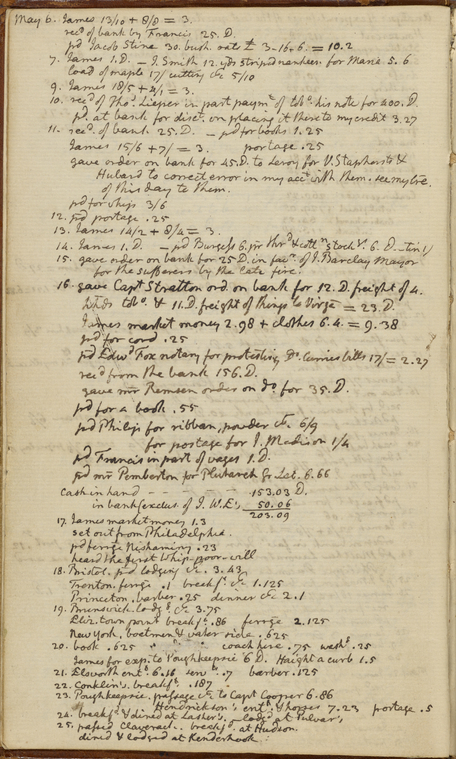 May 6. James 13/10 + 8/8 = 3.
recd of bank by Francis 25. D.
pd Jacob Stine 30. bush. oats £ 3-16-6. = 10.2
7. James 1.D. – J. Smith 12. yds striped nankeen for Maria 5. 6
load of maple 17/ cutting &c 5/10
9. James 18/5 + 4/1 = 3.
10. recd of Thos. Lieper in part paymt of tobo. his note for 400. D.
pd. at bank for disct. on placing it there to my credit 3.27
11. recd. of bank 25. D. – pd for books 1.25
James 15/6 + 7/ = 3. portage .25
gave order on bank for 45.D. to Leroy for V. Staphorst &
Hubard to correct error in my acct with them. see my lre.
of this day to them.
pd for whip 3/6
12. pd portage .25
13. James 14/2 + 8/4 = 3.
14. James 1. D. – pd Burgess 6. pr thrd & cottn stockgs. 6. D. – tin 1/
15. gave order on bank for 25 D. in favr. of J. Barclay Mayor
for the sufferers by the late fire.
16. gave Capt Stratton ord. on bank for 12. D. freight of 4.
hhds tobo. & 11.D. freight of things to Virga = 23. D.
James market money 2.98 + clothes 6.4 = 9.38
pd for cord .25
pd Edwd Fox notary for protesting Do. Curries bills 17/ = 2.27
recd from the bank 156. D.
gave mr Remsen order on do. for 35. D.
pd for a book .55
pd Philips for ribban, powder &c. 6/9
for postage for J. Madison 1/4
pd Francis in part of wages 1. D.
pd mr Pemberton for Plutarch Gr. Lat. 6.66
Cash in hand - - - - 153.03 D.
in bank (exclus. of J. W. E's 50.06
203.09
17. James market money 1.3
set out from Philadelphia.
pd ferrge Neshaminy .23
heard the first whip-poor-will
18. Bristol. pd lodging &c. 3.43
Trenton. ferrge .1 breakft. &c 1.125
Princeton. barber .25 dinner &c 2.1
19. Brunswick. lodgg. &c 3.75
Eliz. town point breakft. .86 ferrge 2.125
New York. boatmen & water side .625
20. book .625 coach hire .75 washg. .25
James for exp. to Poughkeepsie 6 D. Haight a curb 1.5
21. Elsworth entt. 6.16 servts. .7 barber .125
22. Conklin's. breakft. .187
23. Poughkeepsie. passage &c to Capt Cooper 6.86
Hendrickson's entt. & horses 7.23 portage .5
24. breakft. & dined at Lasher's, lodgd. at Pulvar's
25. passed Claverack. breakft. at Hudson.
dined & lodged at Kenderhook.